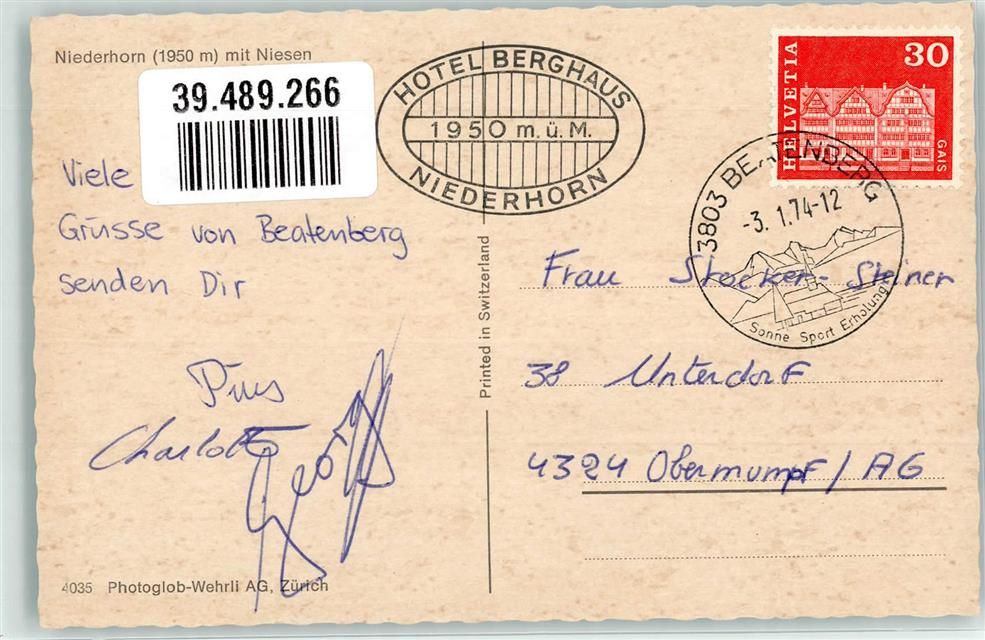 Niederhorn (1950 m) mit Niesen
39.489.266
HOTEL BERGHAUS
1950 m.ü.M.
NIEDERHORN
HELVETIA
30
GAIS
3803 BEATENBERG
-3. 1.74-12
Sonne Sport Erholung
Viele
Grüsse von Beatenberg
senden Dir
Pius
Charlotte
Printed in Switzerland
Frau Stocker-Steiner
38 Unterdorf
4324 Obermumpf / AG
4035 Photoglob-Wehrli AG, Zürich